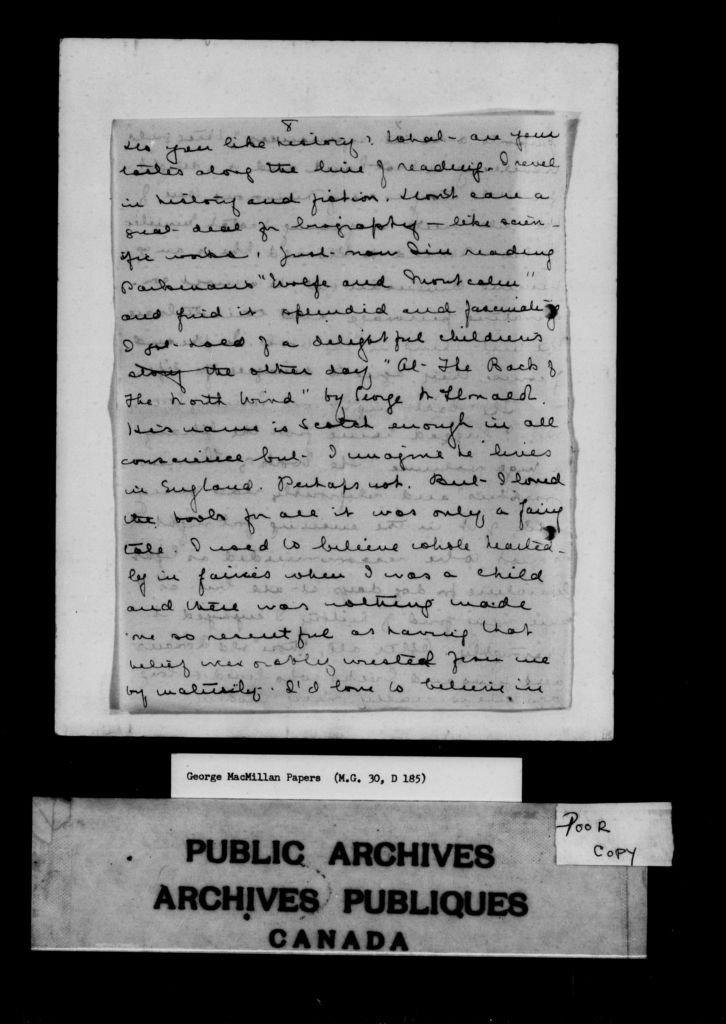 8
Do you like history? What are your
tastes along the line of reading. I revel
in history and fiction. Don't care a
great deal for biography — like scien-
tific works. Just now I'm reading
Parkman's "Wolfe and Montcalm"
and find it splendid and fascinating
I got hold of a delightful children's
story the other day, "At The Back of
The North Wind" by George McDonald.
His name is Scotch enough in all
conscience but I imagine he lives
in England. Perhaps not. But I loved
the book for all it was only a fairy
tale. I used to believe whole hearted-
ly in fairies when I was a child
and there was nothing made
me so resentful as having that
belief inexorably wrested from me
by maturity. I'd love to believe in
George MacMillan Papers (M.G. 30, D 185)
POOR
COPY
PUBLIC ARCHIVES
ARCHIVES PUBLIQUES
CANADA